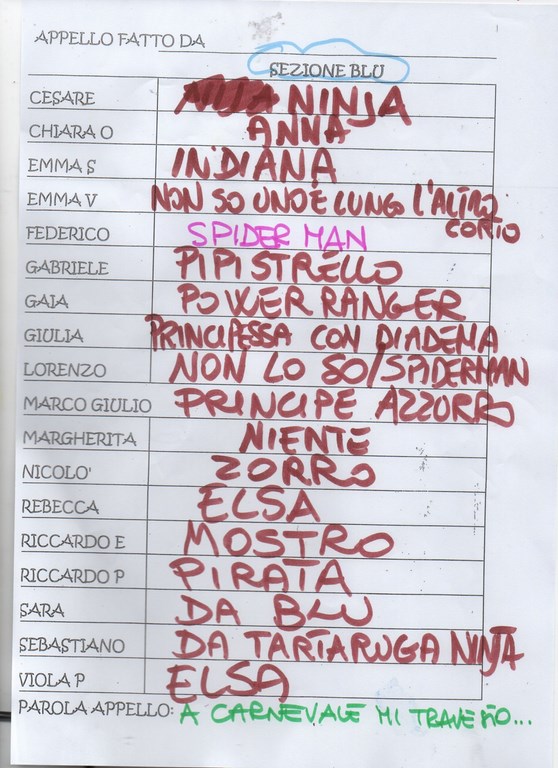 APPELLO FATTO DA
SEZIONE BLU
CESARE NINJA
CHIARA O ANNA
EMMA S INDIANA
EMMA V NON SO UNO È LUNGO L'ALTRO
CORTO
FEDERICO SPIDER MAN
GABRIELE PIPISTRELLO
GAIA POWER RANGER
GIULIA PRINCIPESSA CON DIADEMA
LORENZO NON LO SO/SPIDERMAN
MARCO GIULIO PRINCIPE AZZURRO
MARGHERITA NIENTE
NICOLO' ZORRO
REBECCA ELSA
RICCARDO E MOSTRO
RICCARDO P PIRATA
SARA DA BLU
SEBASTIANO DA TARTARUGA NINJA
VIOLA P ELSA
PAROLA APPELLO: A CARNEVALE MI TRAVESTO...